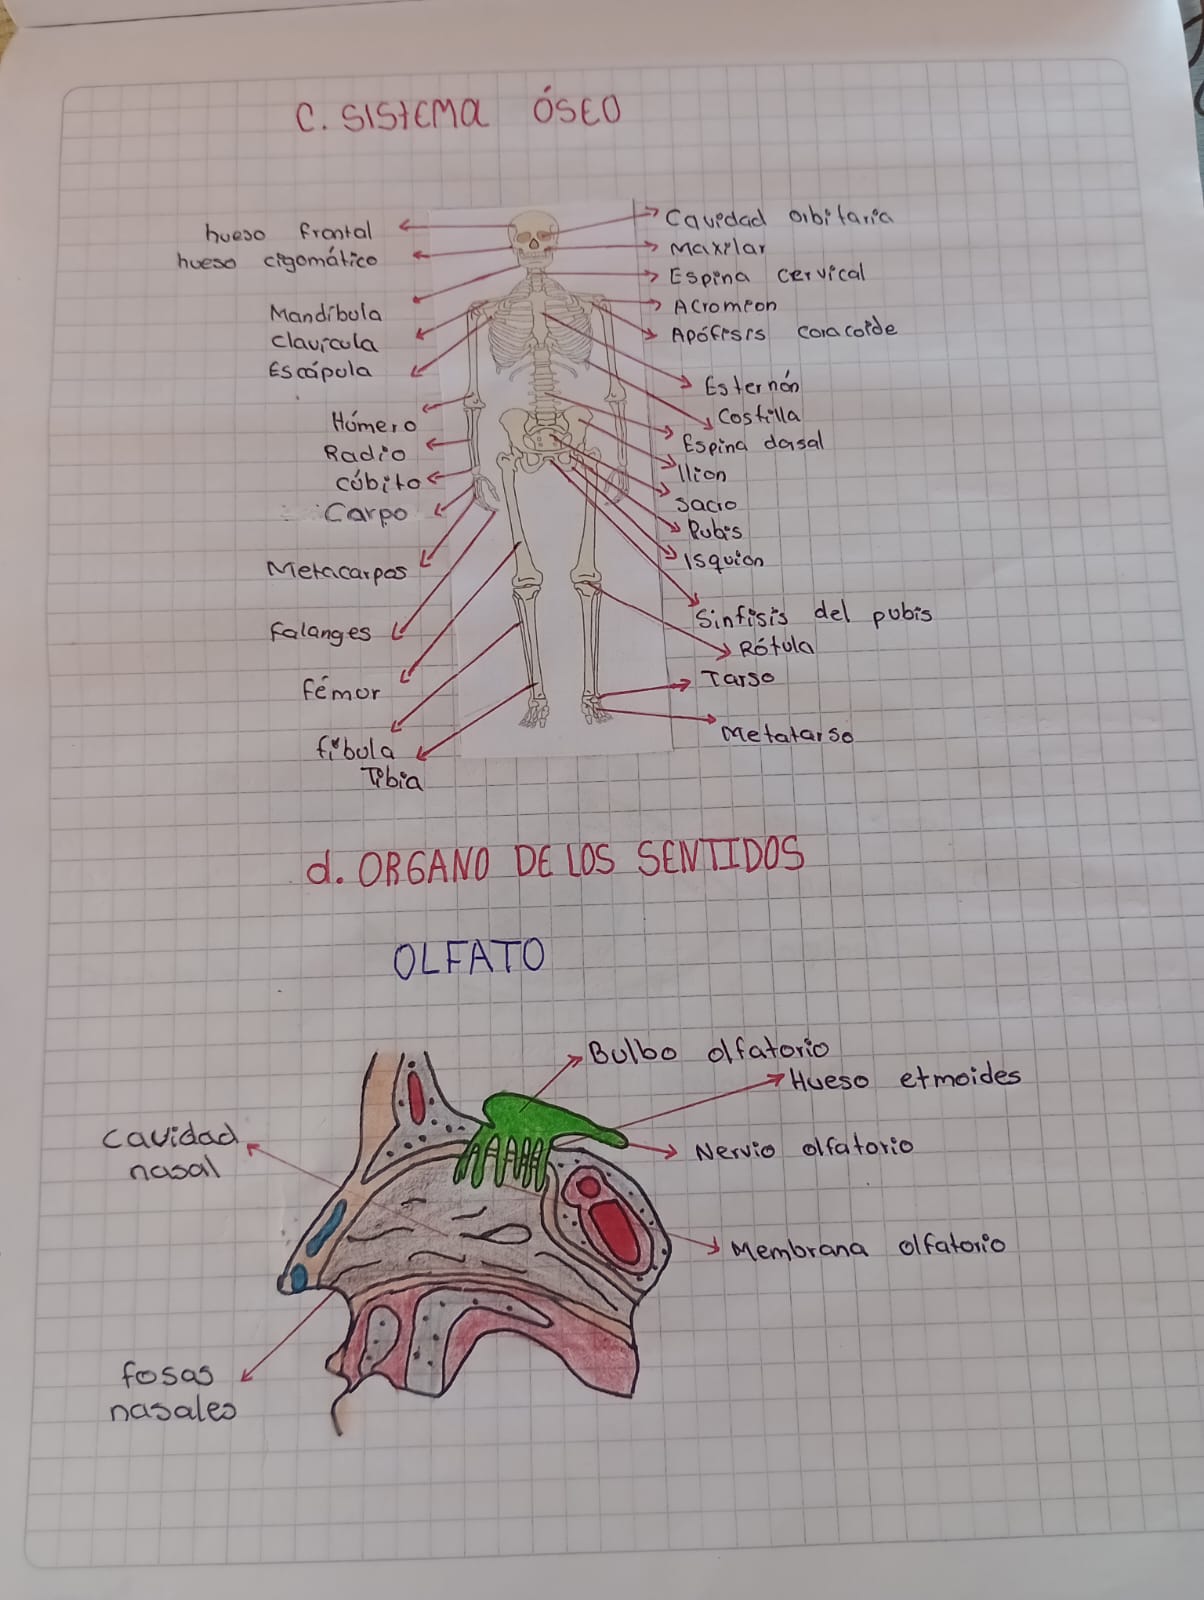 C. SISTEMA ÓSEO
hueso frontal
hueso cigomático
Mandíbula
Clavícula
Escápula
Húmero
Radio
Cúbito
Carpo
Metacarpos
Falanges
Fémor
fíbula
Tibia
Cavidad orbitaria
Maxilar
Espina cervical
Acromeon
Apófisis coracoide
Esternón
Costilla
Espina dosal
Ilion
Sacro
Pubis
Isquion
Sinfisis del pubis
Rótula
Tarso
Metatarso
d. ORGANO DE LOS SENTIDOS
OLFATO
Bulbo olfatorio
Hueso etmoides
Nervio olfatorio
Membrana olfatorio
Cavidad
nasal
fosas
nasales